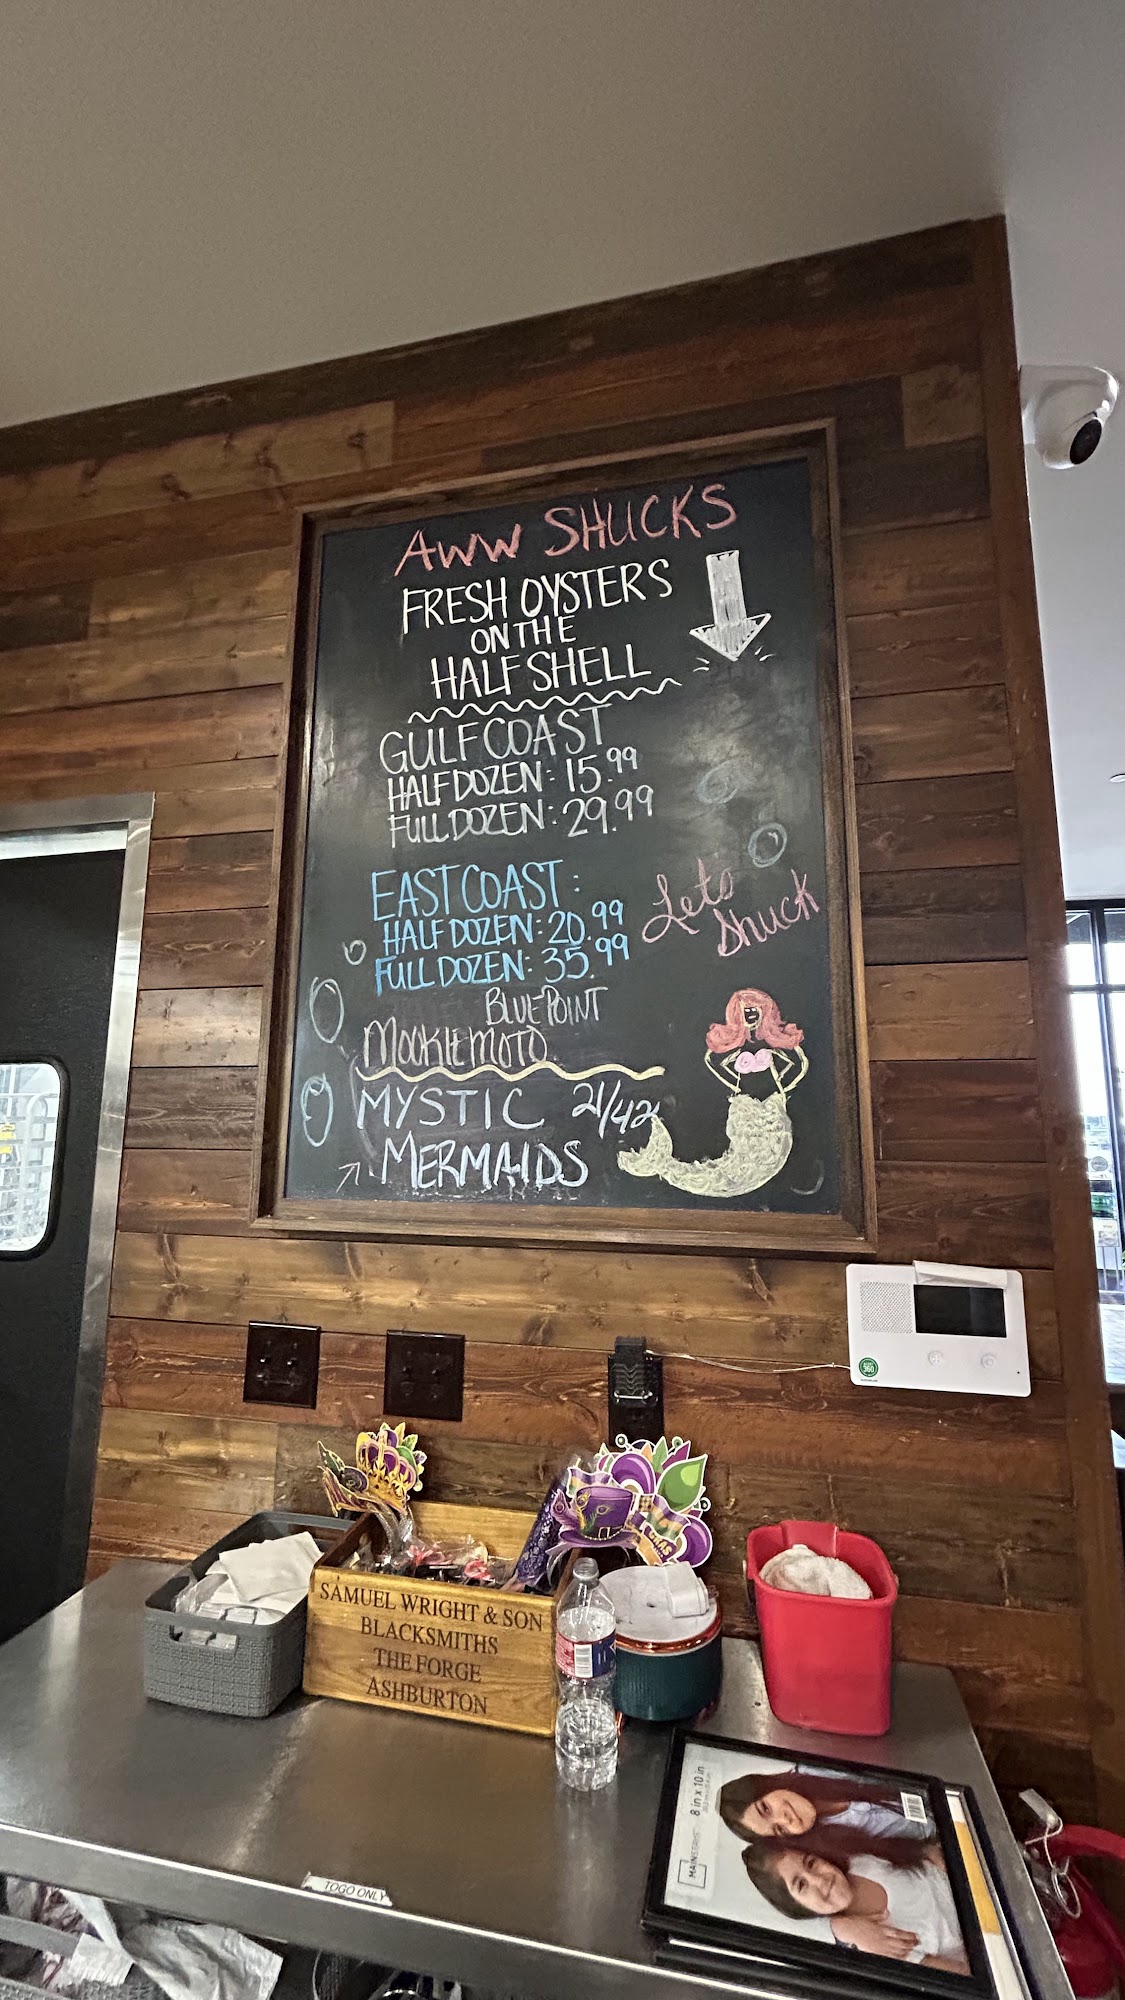 AWW SHUCKS
FRESH OYSTERS
ON THE
HALF SHELL
GULF COAST
HALF DOZEN: 15.99
FULL DOZEN: 29.99
EAST COAST:
HALF DOZEN: 20.99
FULL DOZEN: 35.99
BLUE POINT
MOOKIEMOTO
MYSTIC 21/42
MERMAIDS
Lets
Shuck
360
SAMUEL WRIGHT & SON
BLACKSMITHS
THE FORGE
ASHBURTON
TOGO ONLY
MAINSTAYS
8 in x 10 in